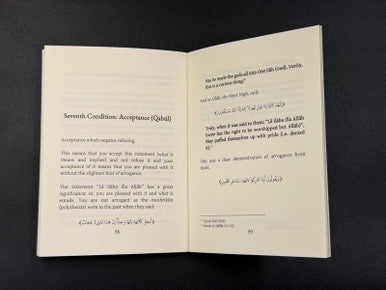 Seventh Condition: Acceptance (Qabul)
Acceptance which negates refusing.
This means that you accept this statement (what it
means and implies) and not refuse it and your
acceptance of it means that you are pleased with it
without the slightest hint of arrogance.
The statement "Lā ilāha illa Allāh" has a great
significance, so, you are pleased with it and what it
entails. You are not arrogant as the mushrikūn
(polytheists) were in the past when they said:
58
Has he made the gods all into One Ilāh (God). Verily,
this is a curious thing!"
And Allāh, the Most High, said:
Truly, when it was said to them: "Lā ilāha illa
(none has the right to be worshipped but Allāh)",
they puffed themselves up with pride (i.e. denied
it).
This was a clear demonstration of arrogance from
them.
59